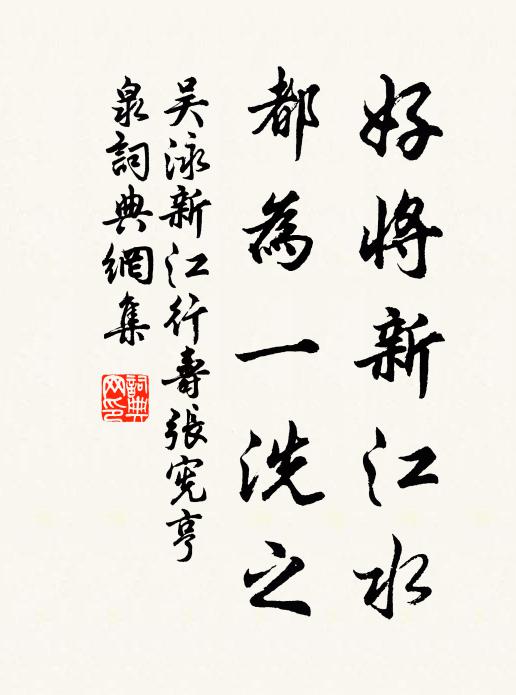 好將新江水
都為一洗之
吳泳新江行壽張宪亨
泉詞典網集
詞典
网印